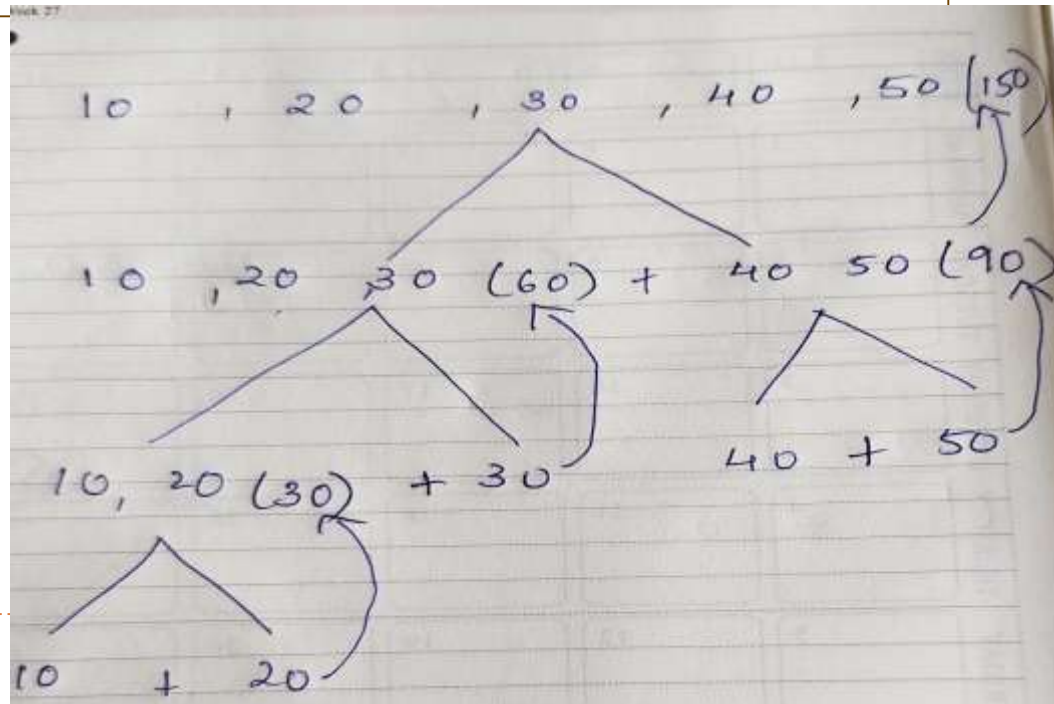 10 , 20 , 30 , 40 , 50 (150)
10 , 20 , 30 (60) + 40 50 (90)
10, 20 (30) + 30 40 + 50
10 + 20